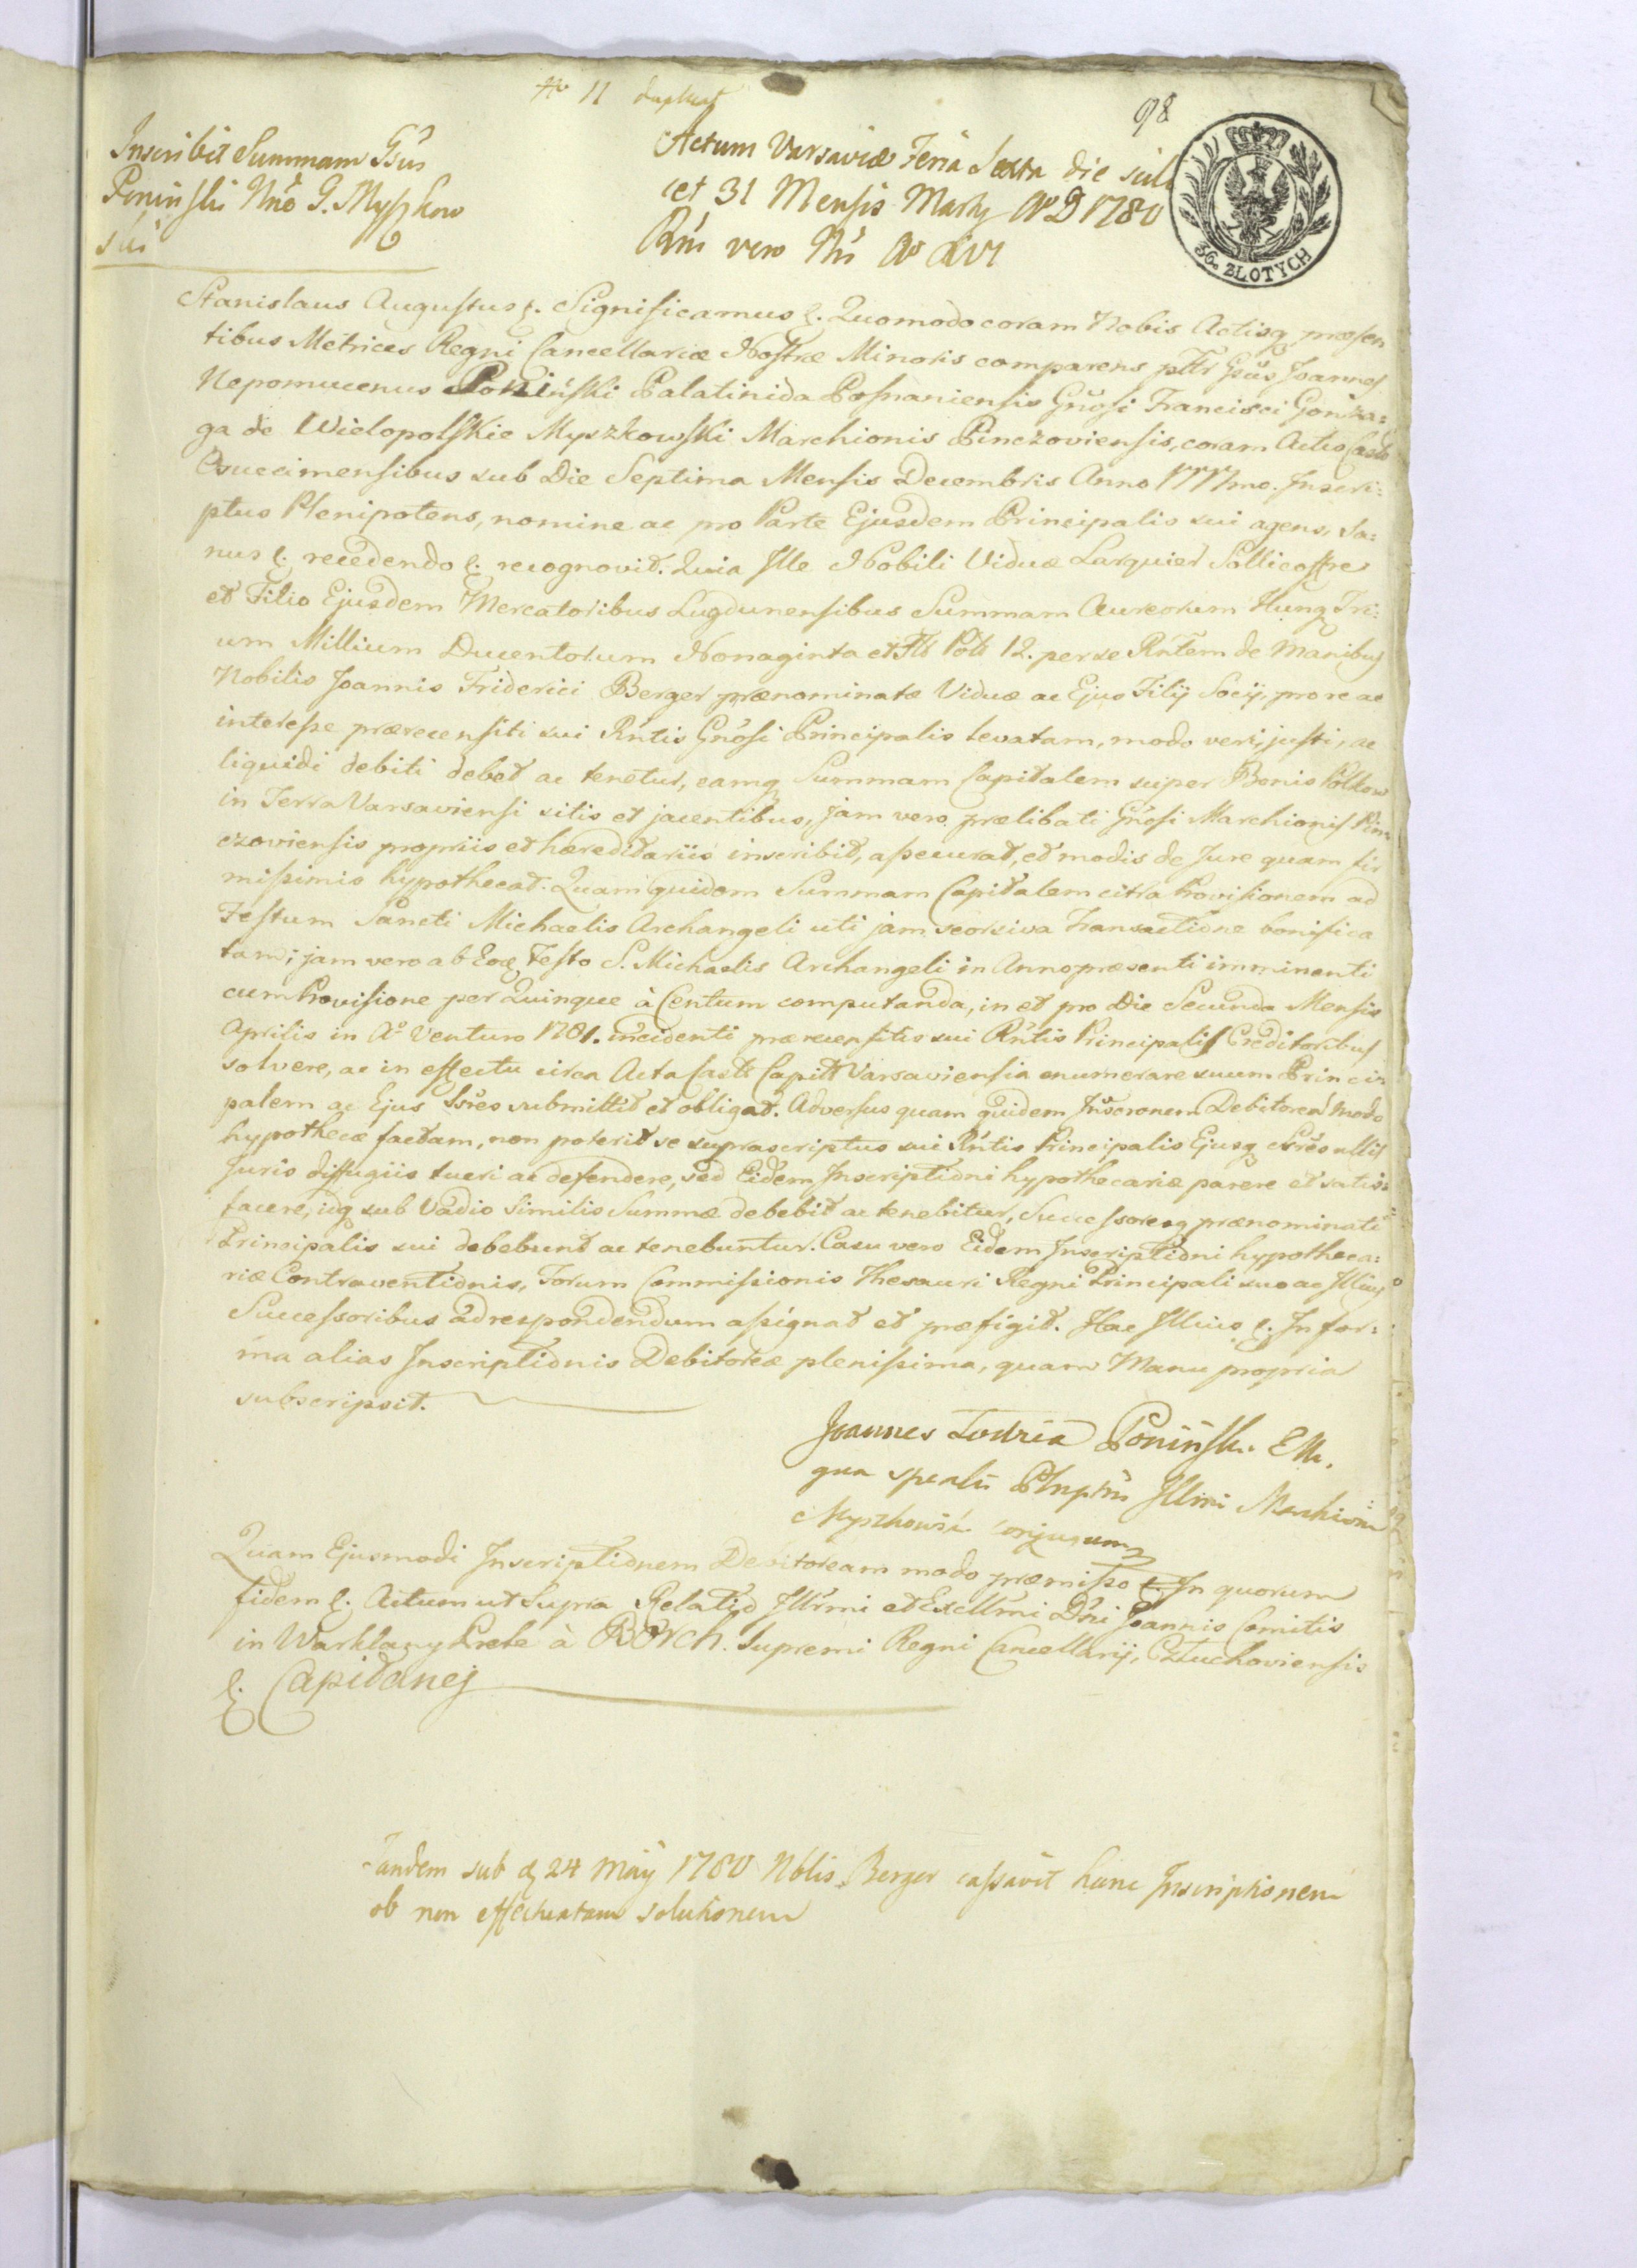 No 11 duplicat
98
Inscribit Summam Gsus
Poninski Nno G. Myszkow
ski
Actum Varsaviæ Feria Sexta die scili
cet 31 Mensis Martij Ao D 1780
Rni vero Nri Ao XVI
36. ZŁOTYCH
Stanislaus Augustus &. Significamus &. Quomodo coram Nobis Actisq præsen
tibus Metrices Regni Cancellariæ Nostræ Minoris comparens pltr Gsus Joannes
Nepomucenus Poniński Palatinida Posnaniensis Gnosi Francisci Gonza=
ga de Wielopolskie Myszkowski Marchionis Pinczoviensis, coram Actis Castr
Osviecimensibus sub Die Septima Mensis Decembris Anno 1777mo. Inscri=
ptus Plenipotens, nomine ac pro Parte Ejusdem Principalis sui agens, Sa=
nus &. recedendo &. recognovit. Quia Ille Nobili Viduæ Larquier Sollicoffre
et Filio Ejusdem Mercatoribus Lugdunensibus Summam Aureorum Hung Tri=
um Millium Ducentorum Nonaginta et Flr Pols 12. per se Rntem de Manibus
Nobilis Joannis Friderici Berger prænominatæ Viduæ ac Ejus Filij Socij, pro re ac
interesse prærecensiti sui Rntis Gnosi Principalis levatam, modo veri, justi, ac
liquidi debiti debet ac tenetur, eamq Summam Capitalem super Bonis Polkow
in Terra Varsaviensi sitis et jacentibus, jam vero prælibati Gnosi Marchionis Pin=
czoviensis propriis et hæreditariis inscribit, assecurat, et modis de Jure quam fir
missimis hypothecat. Quam quidem Summam Capitalem citra Provisionem ad
Festum Sancti Michaelis Archangeli uti jam seorsiva Transactione bonifica
tam; jam vero ab Eoq Festo S. Michaelis Archangeli in Anno præsenti imminenti
cum Provisione per Quinque à Centum computanda, in et pro Die Secunda Mensis
Aprilis in Ao Venturo 1781. incidenti prærecensitis sui Rntis Principalis Creditoribus
solvere, ac in effectu circa Acta Castr Capitl Varsaviensia enumerare suum Princi=
palem ac Ejus Ssres submittit et obligat. Adversus quam quidem Inscronem Debitoream modo
hypothecæ factam, non poterit se suprascriptus sui Rntis Principalis Ejusq Ssres ullis
Juris diffugiis tueri ac defendere, sed Eidem Inscriptioni hypothecariæ parere et satis=
facere, idq sub Vadio similis Summæ debebit ac tenebitur, Successoresq prænominati
Principalis sui debebunt ac tenebuntur. Casu vero Eidem Inscriptioni hypotheca=
riæ Contraventionis, Forum Commissionis Thesauri Regni Principali suo ac Illius
Successoribus ad respondendum assignat et præfigit. Hac Illius &. In for=
ma alias Inscriptionis Debitoreæ plenissima, quam Manu propria
subscripsit.
Joannes Lodzia Poniński
qua spealis Plnptns Illmi Marchionis
Myszkowski
Quam Ejusmodi Inscriptionem Debitoream modo præmisso &. In quorum
fidem &. Actum ut supra Relatio Illrmi et Excllmi Dni Joannis Comitis
in Warklany Prele à Borch. Supremi Regni Cancellarij, Człuchoviensis
&. Capitanej
Tandem sub d 24 Maij 1780 Nblis Berger cassavit hanc Inscriptionem
ob non effectuatam solutionem